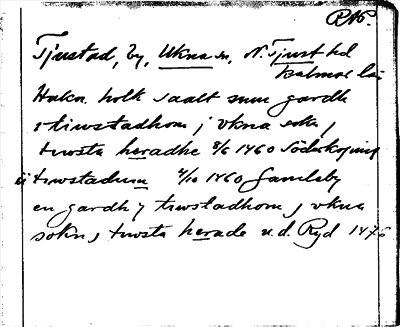 RAP.
Tjustad, by, Ukna sn, N. Tjust hd
Kalmar län
Hakn holk saalt sum gardh
i tiwstadhom j vkna sokn j
twsta heradhe 8/6 1460 Söderköping
ii tiwstadum 4/10 1460 Gamleby
en gardh j tiwstadhom j vkna
sokn j tiwsta herade u.d. Ryd 1476